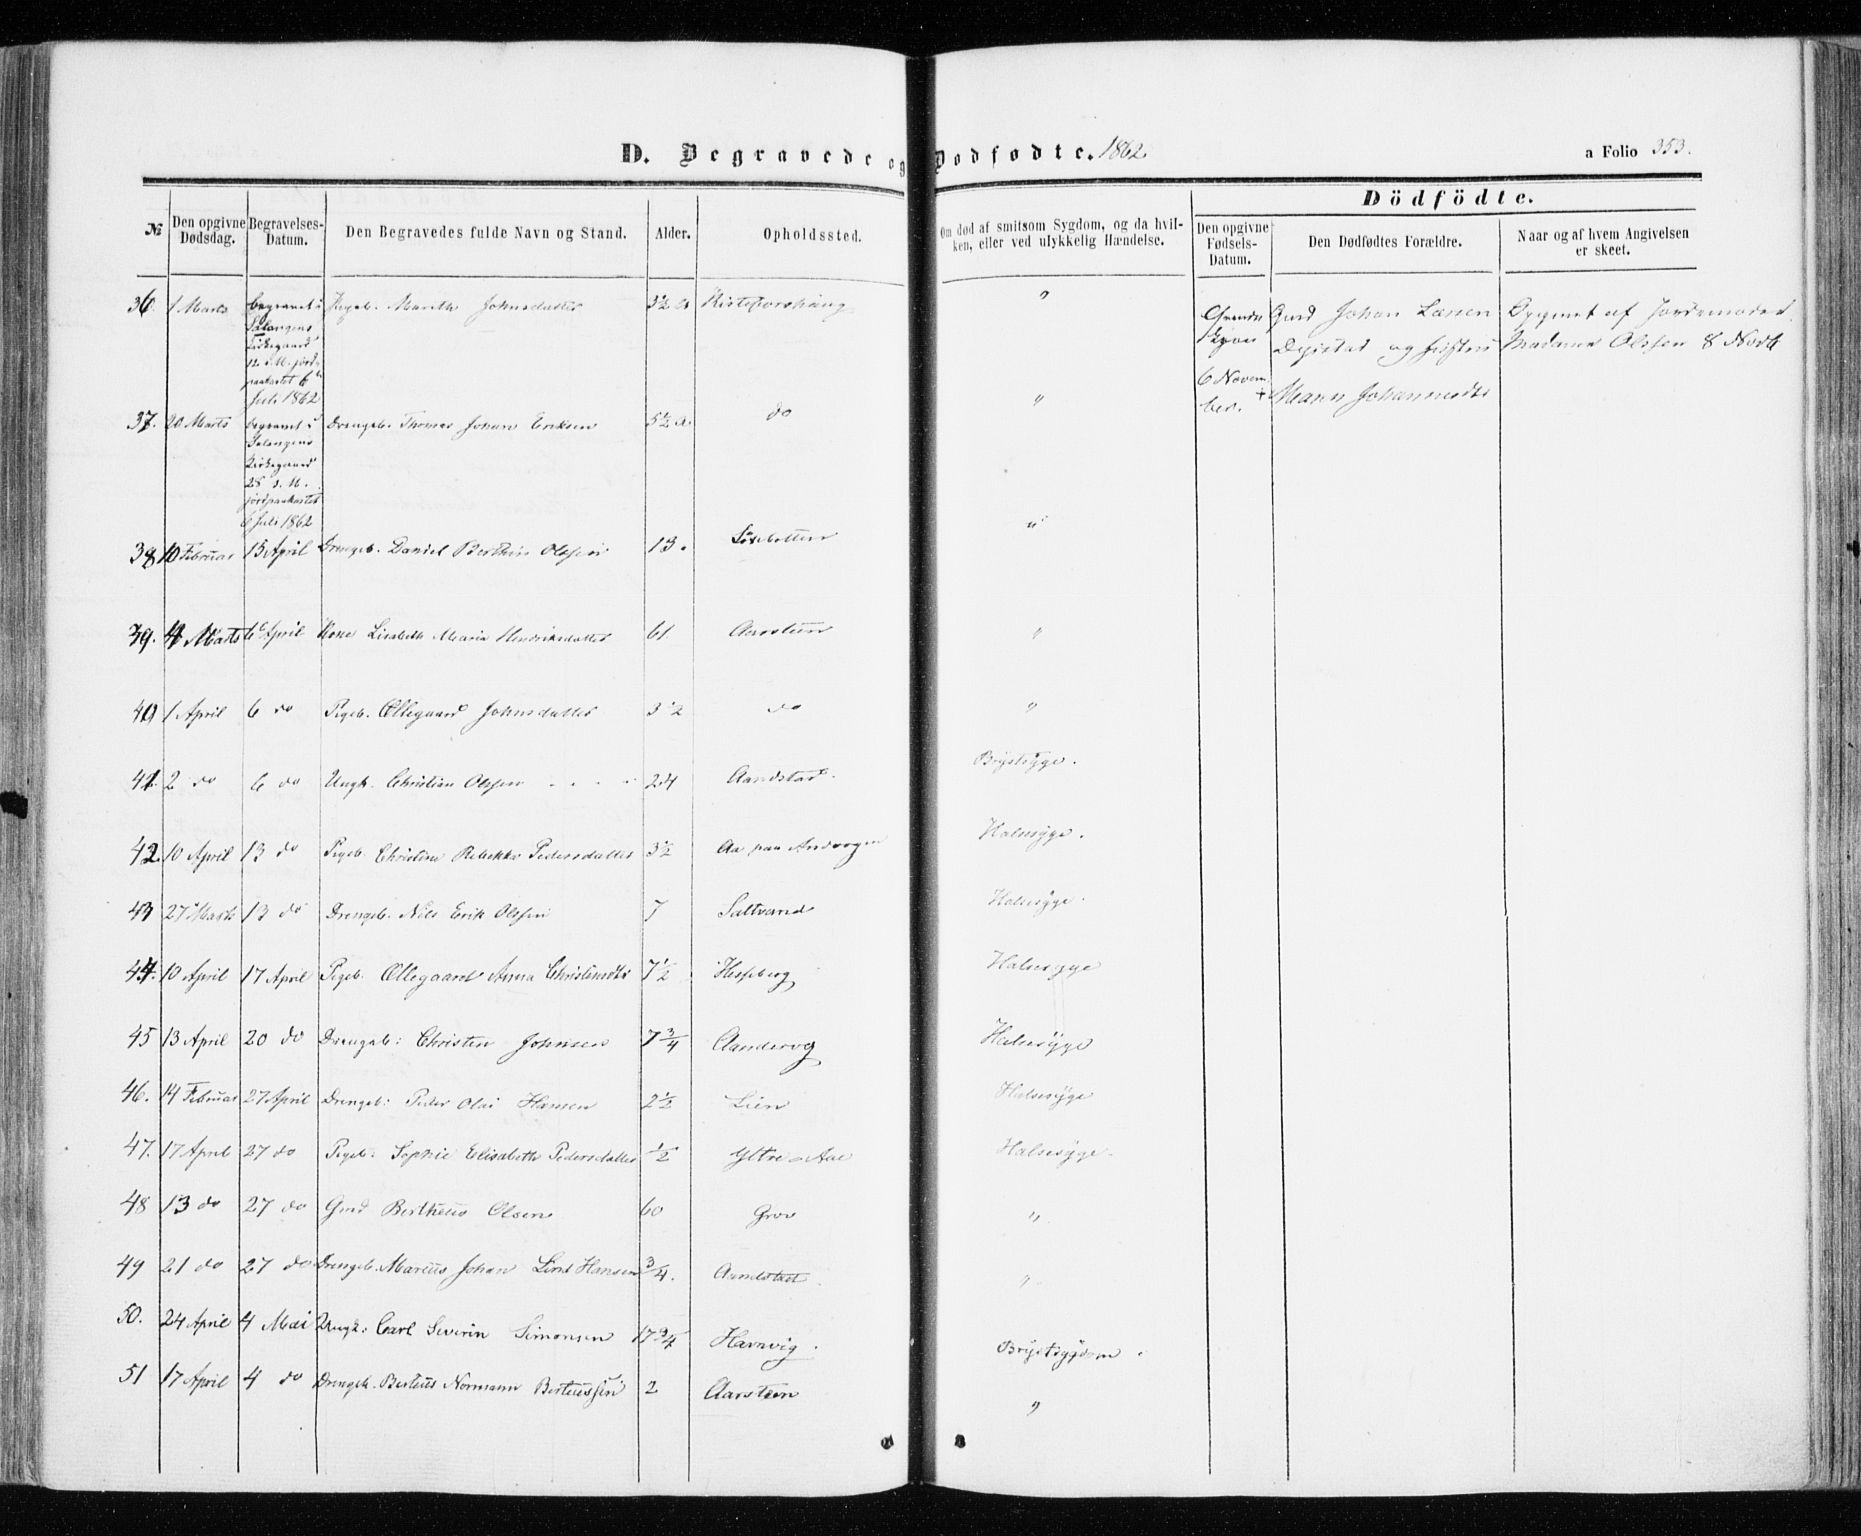 D. Begravede og Dødfødte. 1862.
a Folio 353.
Dödfödte.
№ Den opgivne Dødsdag. Begravelses-Datum. Den Begravedes fulde Navn og Stand. Alder. Opholdssted. Om død af smitsom Sygdom, og da hvilken, eller ved ulykkelig Hændelse. Den opgivne Fødsels-Datum. Den Dødfødtes Forældre. Naar og af hvem Angivelsen er skeet.
36. 1 Marts begravet i Salangens Kirkegaard 12 d. M. jordpaakastet 6te Juli 1862 Pigeb. Marith Johnsdatter 3½ A "
Gmd Johan Larsen og Hustru Maren Johannesdtr
6 November.
Opgivet af Jordemoder Madame Olssen 8 Novb
37. 20 Marts begravet i Salangens Kirkegaard 28 d. M. jordpaakastet 6 Juli 1862 Drengeb. Thomas Johan Eriksen 5½ A do "
38 10 Februar 13 April Drengeb. Daniel Berthin Olssen 13. "
39. 4 Marts 6 April Kone Lisabeth Maria Hendriksdatter 61 Aarsteen "
40 1 April 6 do Pigeb. Ellegaard Johnsdatter 3½ do "
41. 2 do 6 do Ungk. Christian Olssen 24 Aandstad. Brystsyge.
42. 10 April 13 do Pigeb. Christine Rebekka Pedersdatter 3½ Aa paa Andørgen Halssyge.
43 27 Marts 13 do Drengeb. Nils Erik Olssen 7 Saltvand Halssyge.
44. 10 April 17 April Pigeb. Ellegaard Anna Christensdtr 7½ Hesseberg Halssyge
45 13 April 20 do Drengeb: Christen Johnsen 7¾ Aandervog Halssyge
46. 14 Februar 27 April Drengeb: Peder Olai Hansen 2½ Lien Halssyge
47. 17 April 27 do Pigeb: Sophie Elisabeth Pedersdatter ½ Yttre-Aae Halssyge.
48 13 do 27 do Gmd Bertheus Olsen 60 Grov "
49 21 do 27 do Drengeb. Marcus Johan Lind Hansen ¾. Aandstad. "
50. 24 April 4 Mai Ungk: Carl Severin Simonsen 17¾ Havnvig. Brystsygdom.
51 17 April 4 do Drengeb. Berteus Normann Berteussen 2 Aarsteen "